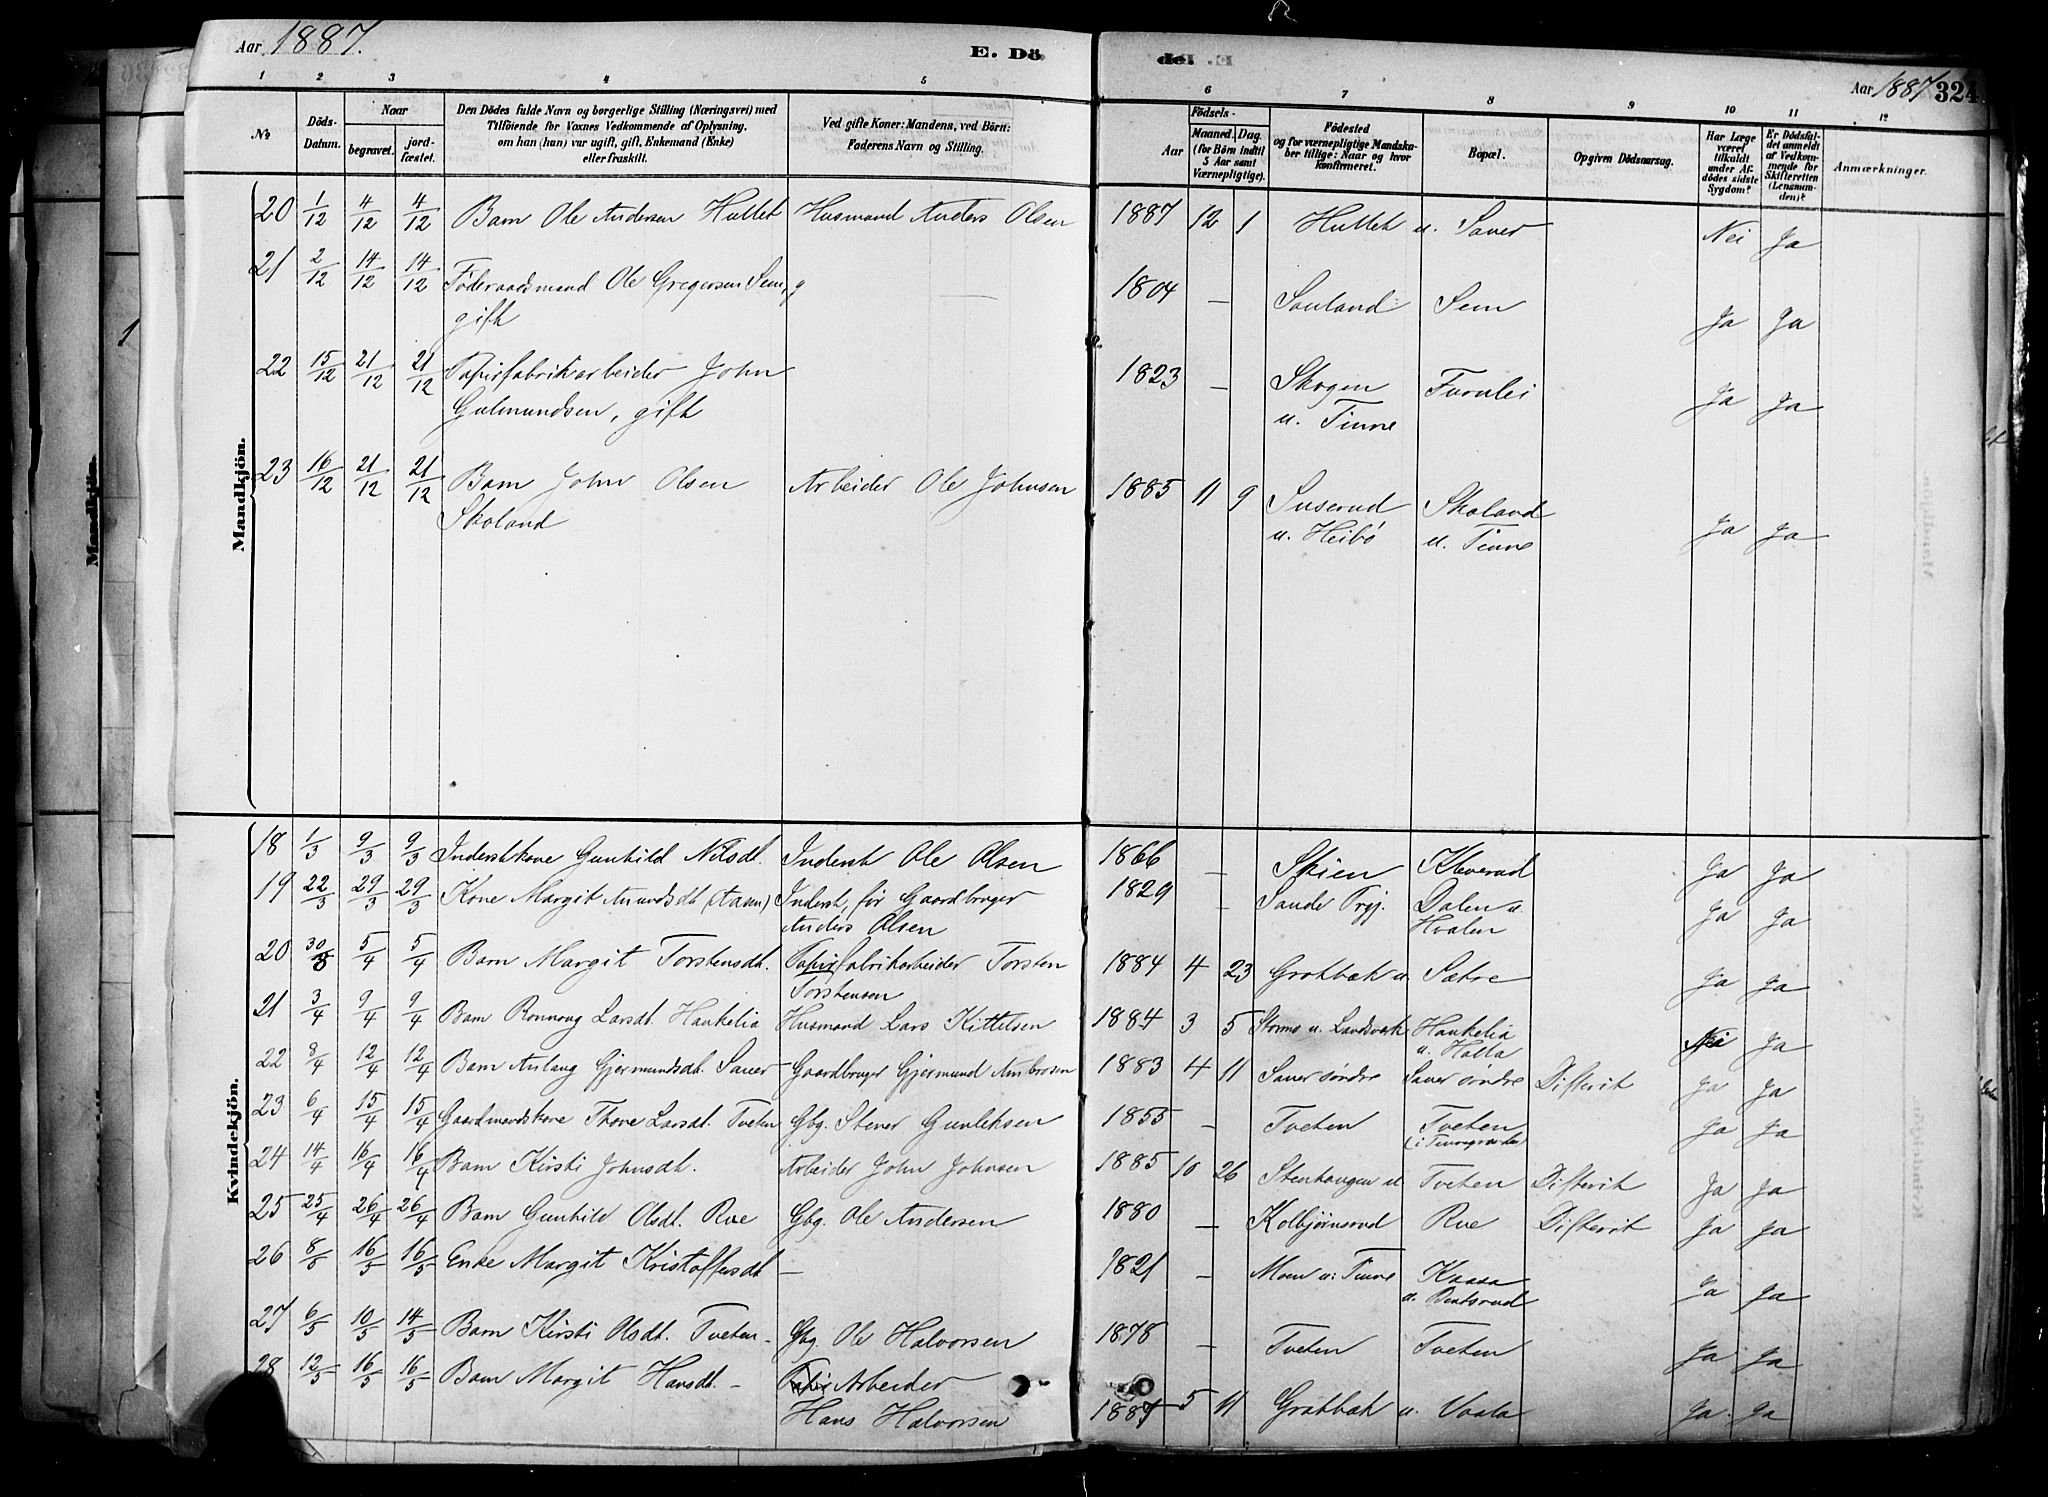 Aar 1887.
E. Dö
de. E
Aar 1887 324
1 2 3 4 5 6 7 8 9 10 11 12
No
Döds-Datum.
Naar
begravet.
jordfæstet.
Den Dödes fulde Navn og borgerlige Stilling (Næringsvei) med
Tilföiende for Voxnes Vedkommende af Oplysning,
om han (hun) var ugift, gift, Enkemand (Enke)
eller fraskilt.
Ved gifte Koner: Mandens, ved Börn:
Faderens Navn og Stilling.
Födsels-
Aar
Maaned. Dag.
(for Börn indtil
5 Aar samt
Værnepligtige).
Födested
og for værnepligtige Mandska-
ber tillige: Naar og hvor
konfirmeret.
Bopæl.
Opgiven Dödsaarsag.
Har Læge
været
tilkaldt
under Af-
dödes sidste
Sygdom?
Er Dödsfal-
det anmeldt
af Vedkom-
mende for
Skifteretten
(Lensman-
den)?
Anmærkninger.
Mandkjön.
20 1/12 4/12 4/12 Barn Ole Andersen Hullet Husmand Anders Olsen 1887 12 1 Hullet u. Sauer Nei Ja
21 2/12 14/12 14/12 Föderaadsmand Ole Gregersen Sem, 1804 — Sauland Sem Ja Ja
gift
22 15/12 21/12 21/12 Papirfabrikarbeider John 1823 — Skogen Furulei Ja Ja
Gulmundsen, gift u. Tinne
23 16/12 21/12 21/12 Barn John Olsen Arbeider Ole Johnsen 1885 11 9 Suserud Skoland Ja Ja
Skoland u. Heibö u. Tinne
Kvindekjön.
18 1/3 9/3 9/3 Inderstkone Gunhild Nilsdt. Inderst Ole Olsen 1866 — Skien Kleverud Ja Ja
19 22/3 29/3 29/3 Kone Margit Amundsdt. (Aasen) Inderst, för Gaardbruger 1829 — Sande Trgj. Dalen u. Ja Ja
Anders Olsen Hvalen
20 30/3 5/4 5/4 Barn Margit Torstensdt. Papirfabrikarbeider Torsten 1884 4 23 Grotbæk u. Sætre Ja Ja
Torstensen
21 3/4 9/4 9/4 Barn Ronnoug Larsdt. Haukelia Husmand Lars Kittelsen 1884 3 5 u. Landsverk Haukelia Nei Ja
u. Holla
22 8/4 12/4 12/4 Barn Aslaug Gjermundsdt. Sauer Gaardbruger Gjermund Ambrosen 1883 4 11 Sauer söndre Sauer söndre Difterit Ja Ja
23 6/4 15/4 15/4 Gaardmandskone Thone Larsdt. Tveten Gbg. Stener Gunleksen 1855 — Tveten Tveten Ja Ja
24 14/4 16/4 16/4 Barn Kirsti Johnsdt. Arbeider John Johnsen 1885 10 26 Stenhaugen u. Tveten Difterit Ja Ja
25 25/4 26/4 26/4 Barn Gunhild Olsdt. Rue Gbg. Ole Andersen 1880 — Kolbjörnsrud Rue Difterit Ja Ja
26 8/5 16/5 16/5 Enke Margit Kristoffersdt. — 1821 — Moen u. Tinne Kaasa Ja Ja
u. Bentsrud
27 6/5 10/5 14/5 Barn Kirsti Olsdt. Tveten – Gbg. Ole Halvorsen 1878 — Tveten Tveten Ja Ja
28 12/5 16/5 16/5 Barn Margit Hansdt. – Arbeider
Hans Halvorsen 1887 5 11 Grotbæk u. Vaala Ja Ja